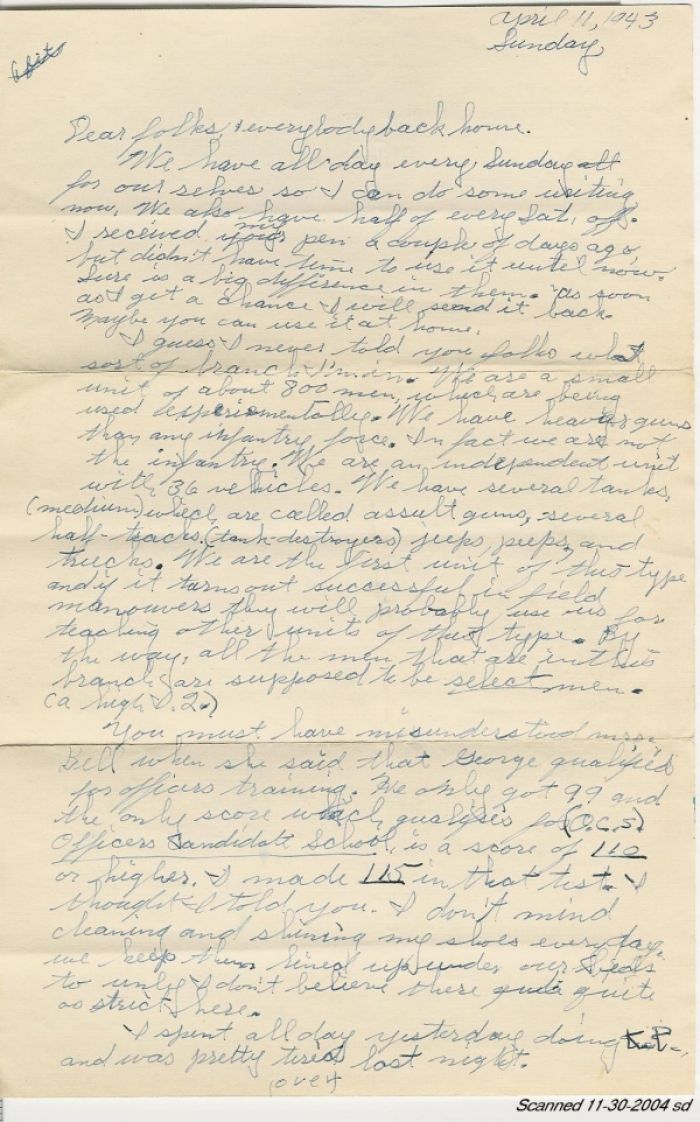 April 11, 1943
Sunday,
Dear folks, & everybody back home.
We have all day every Sunday
for our selves so I can do some writing
now. We also have half of every Sat. off.
I received my pen a couple of days ago,
but didn't have time to use it until now.
Sure is a big difference in them. as soon
as I get a chance I will send it back.
Maybe you can use it at home.
I guess I never told you folks what
sort of branch I'm in. We are a small
unit of about 800 men, which are being
used experiementally. We have heavier guns
than any infantry force. In fact we are not
the infantry. We are an independent unit
with 36 vehicles. We have several tanks,
(medium) which are called assult guns, several
half-tracks, (tank-destroyers) jeeps, peeps, and
trucks. We are the first unit of this type
and if it turns out successful in field
manouvers they will probably use us for
teaching other units of this type. By
the way, all the men that are in this
branch are supposed to be select men.
(a high I.Q.)
You must have misunderstood
Bell when she said that George qualified
for officers training. He only got 99 and
the only score which qualifis for (O.C.S.)
Officers Candidate School, is a score of 110
or higher. I made 115 in that test. I
thought I told you. I don't mind
cleaning and shining my shoes every day.
we keep them lined up under our beds
to only I don't believe there quite
as strict here.
I spent all day yesterday doing K.P.,
and was pretty tired last night.
(over)
Scanned 11-30-2004 sd